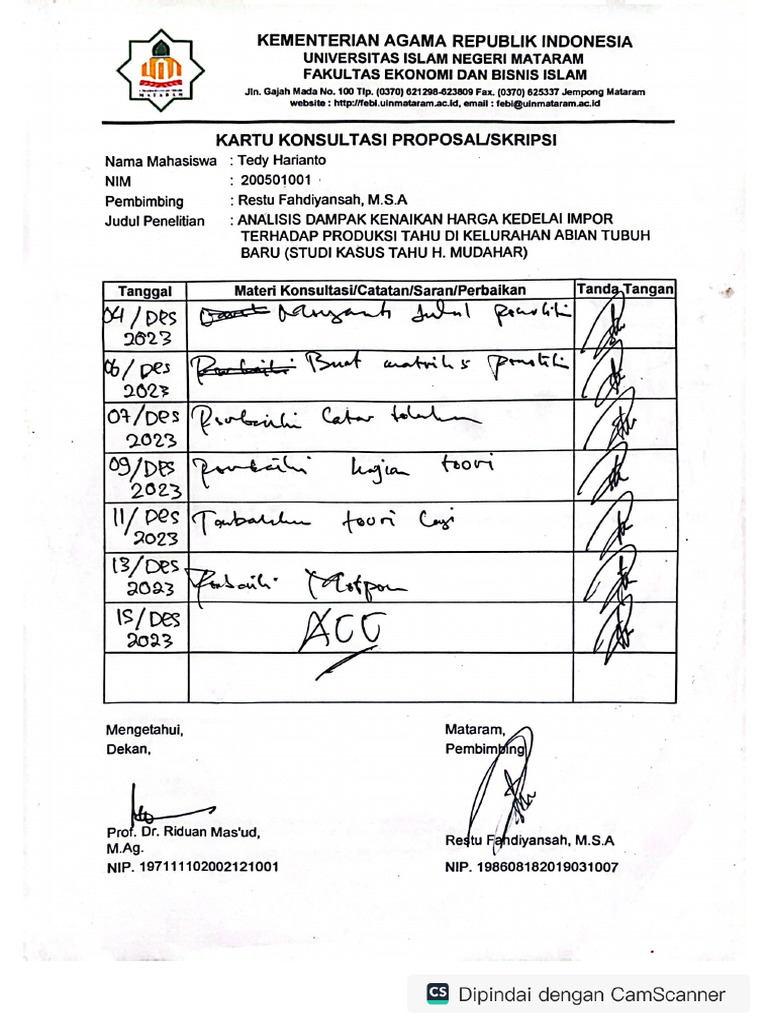 KEMENTERIAN AGAMA REPUBLIK INDONESIA
UNIVERSITAS ISLAM NEGERI MATARAM
FAKULTAS EKONOMI DAN BISNIS ISLAM
Jln. Gajah Mada No. 100 Tlp. (0370) 621298-623809 Fax. (0370) 625337 Jempong Mataram
website : http://febi.uinmataram.ac.id, email : febi@uinmataram.ac.id
MATARAM
KARTU KONSULTASI PROPOSAL/SKRIPSI
Nama Mahasiswa : Tedy Harianto
NIM : 200501001
Pembimbing : Restu Fahdiyansah, M.S.A
Judul Penelitian : ANALISIS DAMPAK KENAIKAN HARGA KEDELAI IMPOR
TERHADAP PRODUKSI TAHU DI KELURAHAN ABIAN TUBUH
BARU (STUDI KASUS TAHU H. MUDAHAR)
Tanggal Materi Konsultasi/Catatan/Saran/Perbaikan Tanda Tangan
04/Des Mengganti Judul penelitian
2023
06/Des Buat matriks penelitian
2023
07/Des Perbaiki Latar belakang
2023
09/Des Perbaiki kajian teori
2023
11/Des Tambahkan teori lagi
2023
13/Des Perbaiki
2023
15/Des ACC
2023
Mengetahui, Mataram,
Dekan, Pembimbing
Prof. Dr. Riduan Mas'ud, Restu Fahdiyansah, M.S.A
M.Ag.
NIP. 197111102002121001 NIP. 198608182019031007
CS Dipindai dengan CamScanner